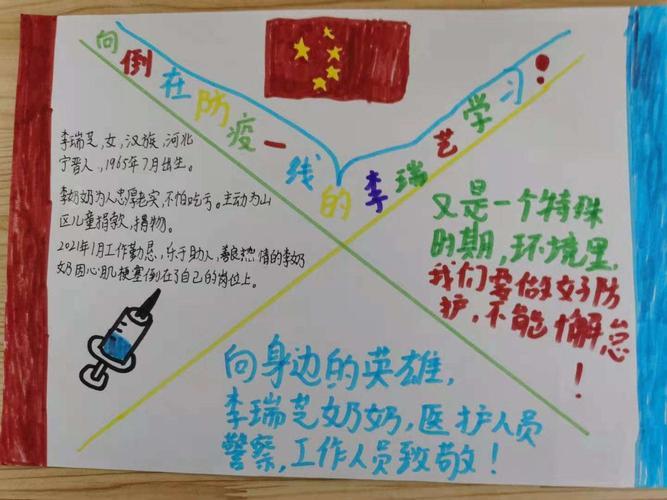 向倒在防疫一线的李瑞艺学习！
李瑞芝，女，汉族，河北
宁晋人，1965年7月出生。
李奶奶为人忠厚老实，不怕吃亏。主动为山
区儿童捐款，捐物。
2021年1月工作勤恳，乐于助人，善良热情的李奶
奶因心肌梗塞倒在了自己的岗位上。
又是一个特殊
时期，环境里，
我们要做好防
护，不能懈怠
！
向身边的英雄，
李瑞芝奶奶，医护人员
警察，工作人员致敬！